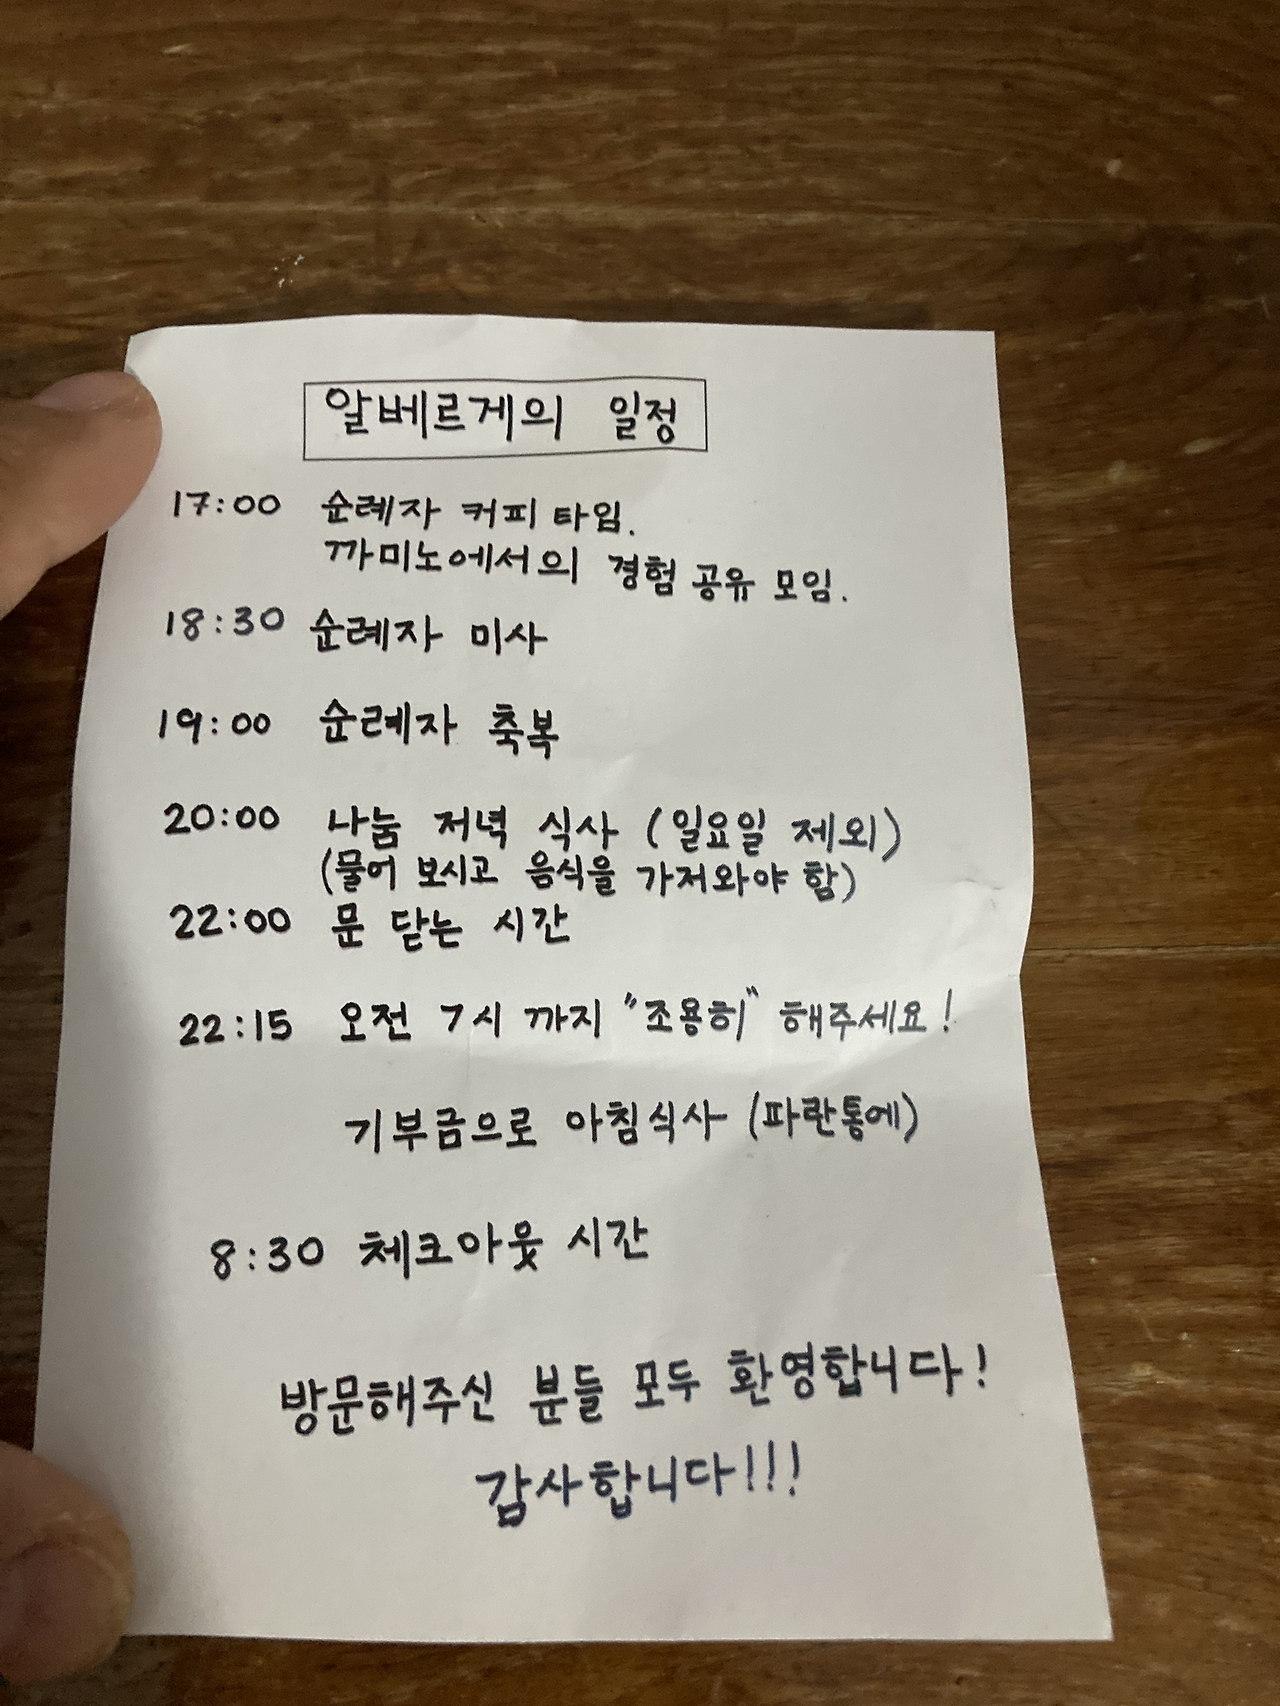 알베르게의 일정
17:00 순례자 커피 타임.
까미노에서의 경험 공유 모임.
18:30 순례자 미사
19:00 순례자 축복
20:00 나눔 저녁 식사 (일요일 제외)
(물어 보시고 음식을 가져와야 함)
22:00 문 닫는 시간
22:15 오전 7시 까지 "조용히" 해주세요!
기부금으로 아침식사 (파란통에)
8:30 체크아웃 시간
방문해주신 분들 모두 환영합니다!
감사합니다!!!